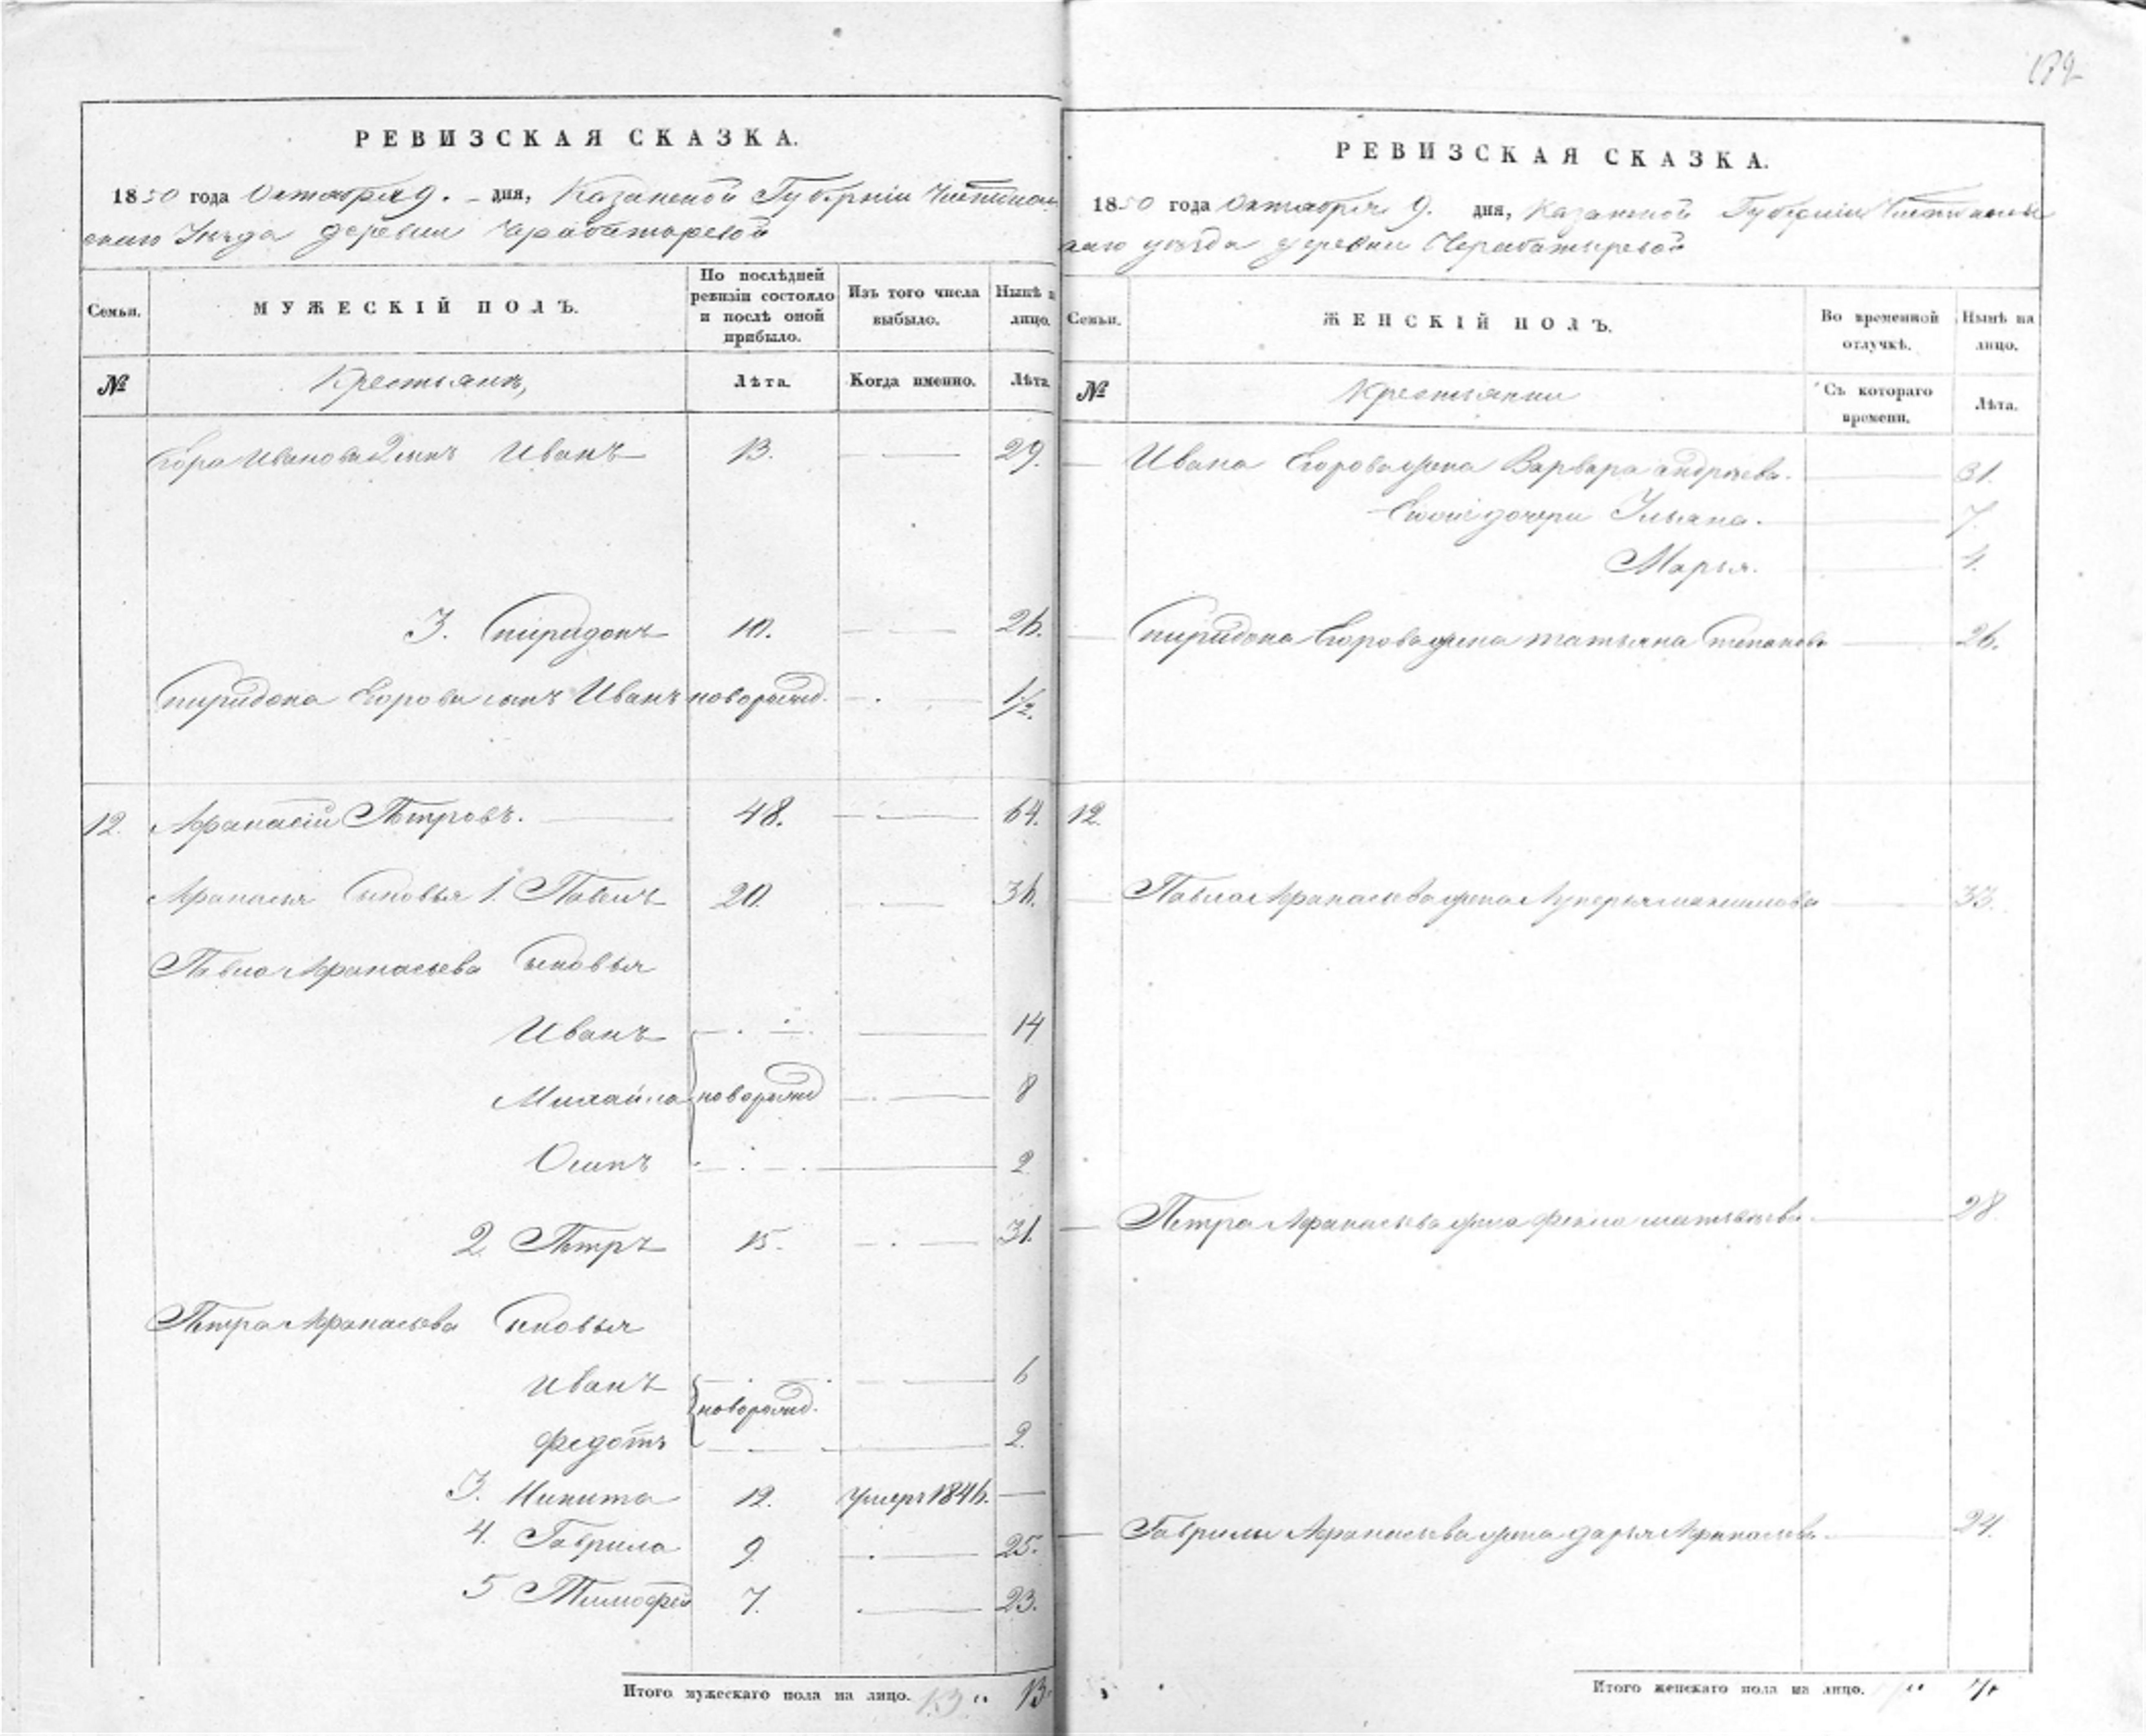 РЕВИЗСКАЯ СКАЗКА.
1850 года Октября 9. дня, Казанской Губерніи Чистополь
скаго Уезда деревни
Семьи.
МУЖЕСКІЙ ПОЛЪ.
По послѣдней ревизіи состояло и послѣ оной прибыло.
Изъ того числа выбыло.
Нынѣ на лицо.
№
Крестьянъ,
Лѣта.
Когда именно.
Лѣта
Егора Иванова 2 сынъ Иванъ 13. 29.
3. Спиридонъ 10. 26.
Спиридона Егорова сынъ Иванъ новорожд. 1/2.
12. Афанасій Петровъ. 48. 64.
Афанасья Сыновья 1. Павелъ 20. 36.
Павла Афанасьева Сыновья
Иванъ 14
Михайла новорожд 8
Осипъ 2
2 Петръ 15. 31.
Петра Афанасьева Сыновья
Иванъ 6
новорожд.
Федотъ 2.
3. Никита 12. умеръ 1846.
4. Гаврила 9. 25.
5 Тимофей 7. 23.
Итого мужескаго пола на лицо. 13 „ 13
РЕВИЗСКАЯ СКАЗКА.
1850 года Октября 9. дня, Казанской Губерніи Чистополь
скаго уезда деревни
Семьи.
ЖЕНСКІЙ ПОЛЪ.
Во временной отлучкѣ.
Нынѣ на лицо.
№
Крестьянки
Съ котораго времени.
Лѣта.
Ивана Егорова жена Варвара Андреева. 31.
дочери Ульяна. 7.
Марья. 4.
Спиридона Егорова жена Татьяна Степанова 26.
12.
Павла Афанасьева жена Лукерья Максимова 33.
Петра Афанасьева жена Фекла Матвеева. 28
Гаврилы Афанасьева жена Дарья Афанасьева. 24.
Итого женскаго пола на лицо.